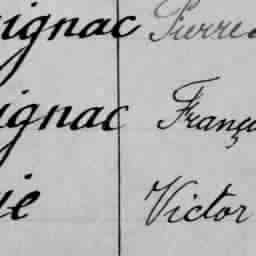 ignac Pierre
ignac Franç
ie Victor